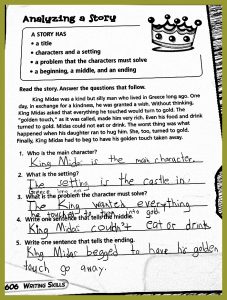 Analyzing a Story
A STORY HAS
• a title
• characters and a setting
• a problem that the characters must solve
• a beginning, a middle, and an ending
Read the story. Answer the questions that follow.
King Midas was a kind but silly man who lived in Greece long ago. One
day, in exchange for kindness, he was granted a wish. Without thinking,
King Midas asked that everything he touched would turn to gold. The
"golden touch," as it was called, made him very rich. Even his food and drink
turned to gold. Midas could not eat or drink. The worst thing was what
happened when his daughter ran to hug him. She, too, turned to gold.
Finally, King Midas had to beg to have his golden touch taken away.
1. Who is the main character?
King Midas is the main character.
2. What is the setting?
The setting is the castle in
Greece long ago
3. What is the problem the character must solve?
The King wanted everything
he touched to turn into gold.
4. Write one sentence that tells the middle.
King Midas couldn't eat or drink
5. Write one sentence that tells the ending.
King Midas begged to have his golden
touch go away.
606 WRITING SKILLS